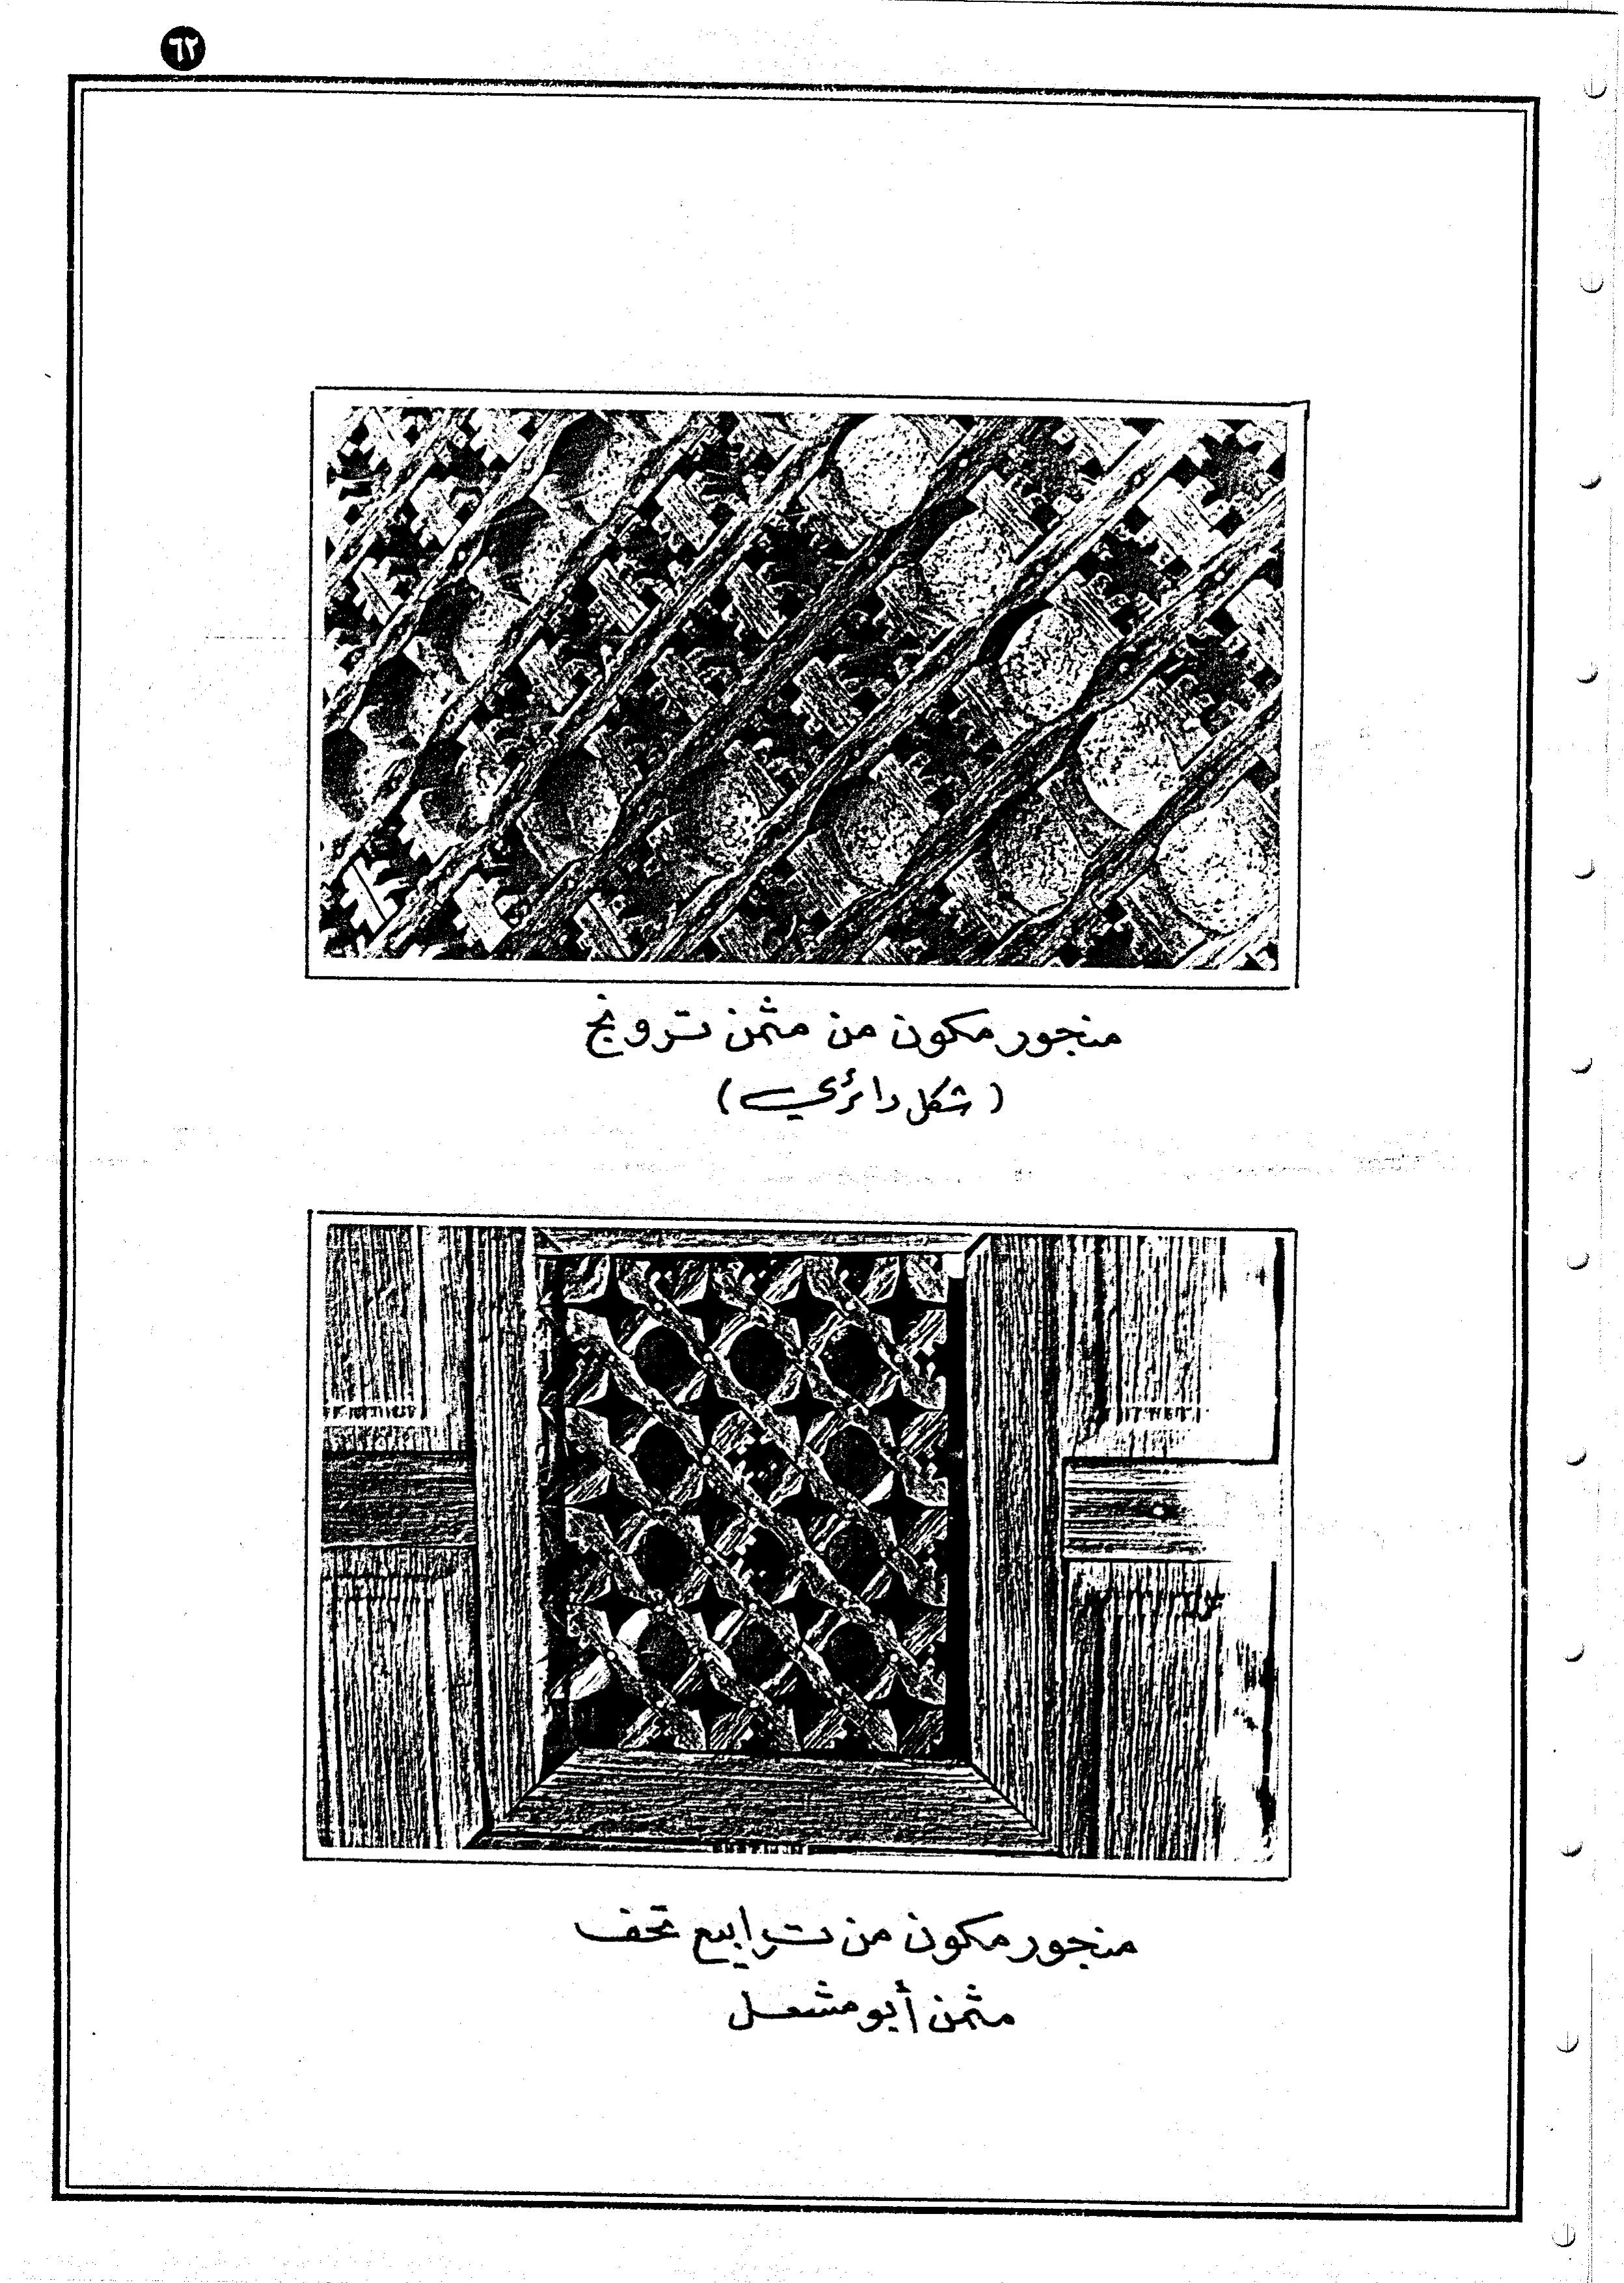 ٦٢
منجور مكون من مثمن ترونج
(شكل دائري)
منجور مكون من ترابيع تحف
مثمن أبو مشعل